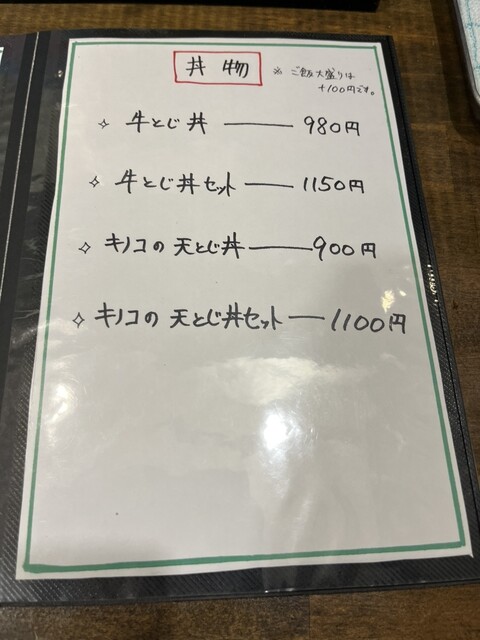 丼物
※ ご飯大盛りは
+100円です。
✧ 牛とじ丼 — 980円
✧ 牛とじ丼セット — 1150円
✧ キノコの天とじ丼 — 900円
✧ キノコの天とじ丼セット — 1100円